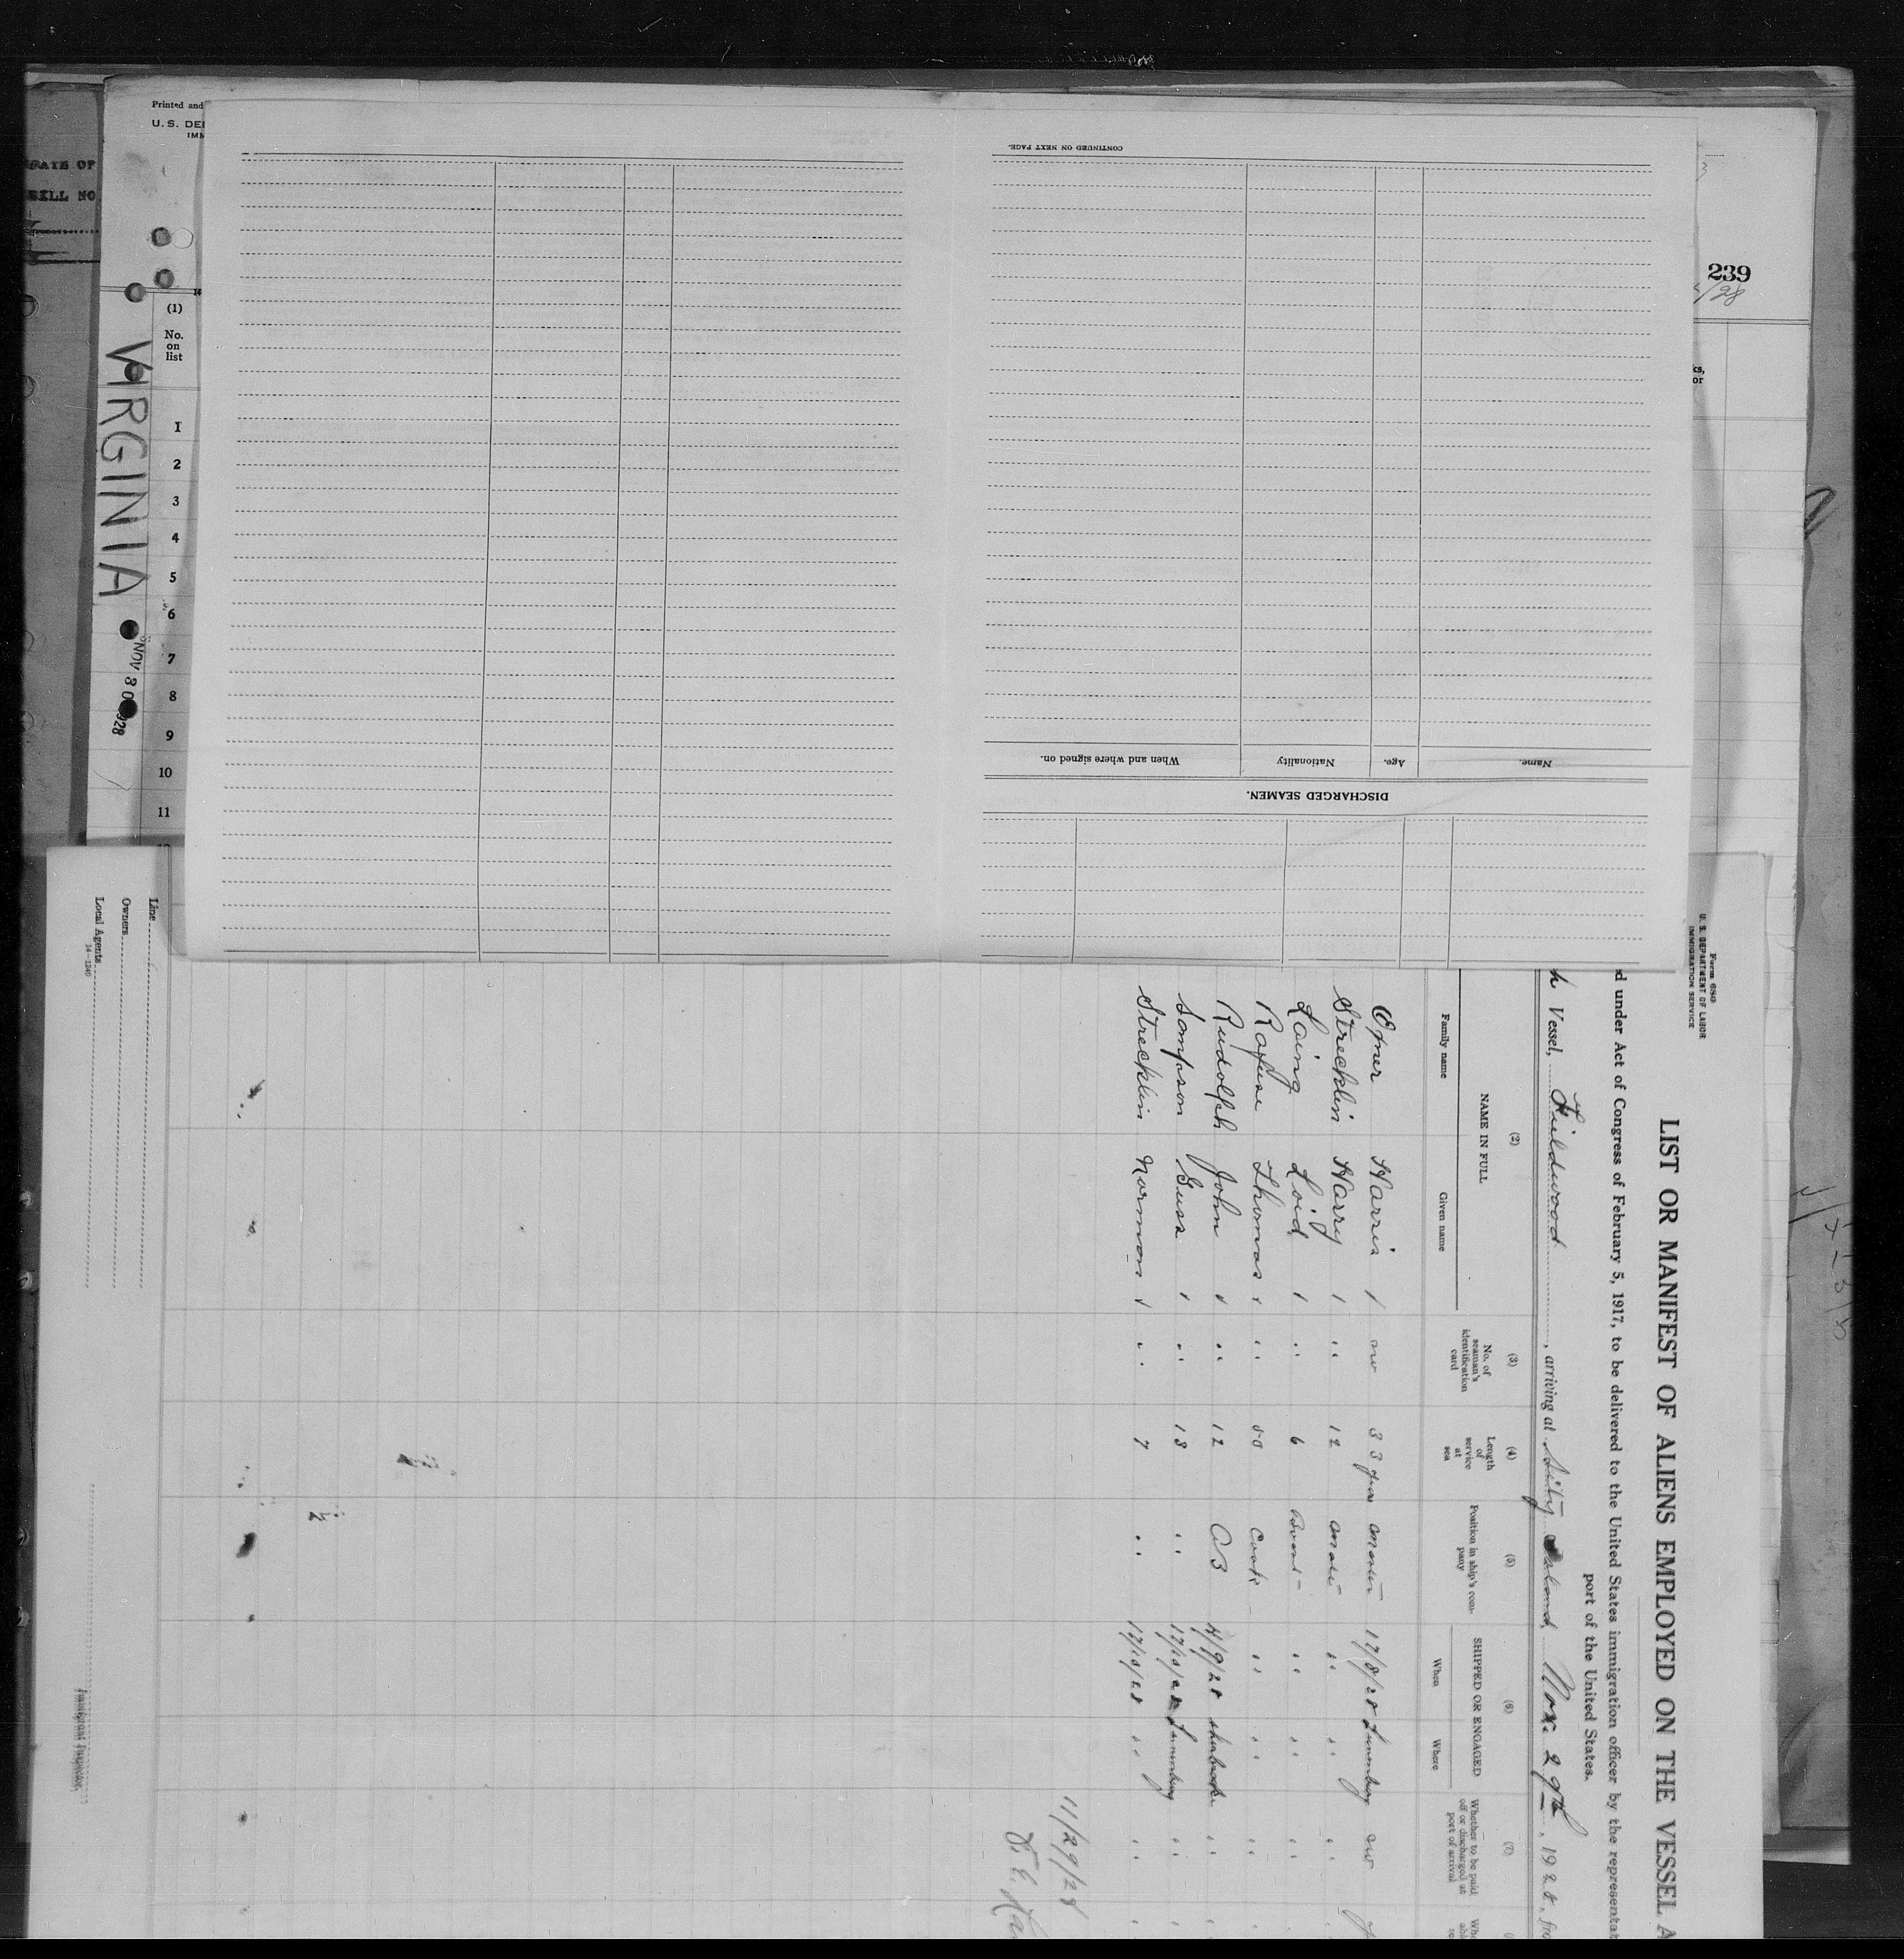 Printed and
U. S. DE
IMM
RATE OF
BILL NO
239
/28
(1)
No.
on
list
1
2
3
4
5
6
7
8
9
10
11
VIRGINIA
NOV 30 1928
CONTINUED ON NEXT PAGE.
Name. Age. Nationality When and where signed on.
DISCHARGED SEAMEN.
Form 680
U. S. DEPARTMENT OF LABOR
IMMIGRATION SERVICE
LIST OR MANIFEST OF ALIENS EMPLOYED ON THE VESSEL A
d under Act of Congress of February 5, 1917, to be delivered to the United States immigration officer by the representat
port of the United States.
h Vessel, Fieldwood, arriving at City Island Nov. 29th, 1928, fro
(2) (3) (4) (5) (6) (7)
NAME IN FULL
Family name Given name
No. of seaman's identification card
Length of service at sea
Position in ship's company
SHIPPED OR ENGAGED
When Where
Whether to be paid off or discharged at port of arrival
Harris no 33 17/8/28 no
Strecklin Harry " 12 mate " " "
Laing Loid " 6 " " "
Rafuse Thomas " 50 Cook " " "
Rudolph John " 12 AB Sherbrooke "
Sampson Guss " 13 " "
Strecklin Norman " 7 " 17/10/28 " "
11/29/28
Line
Owners
Local Agents
14—1240
Immigrant Inspector.